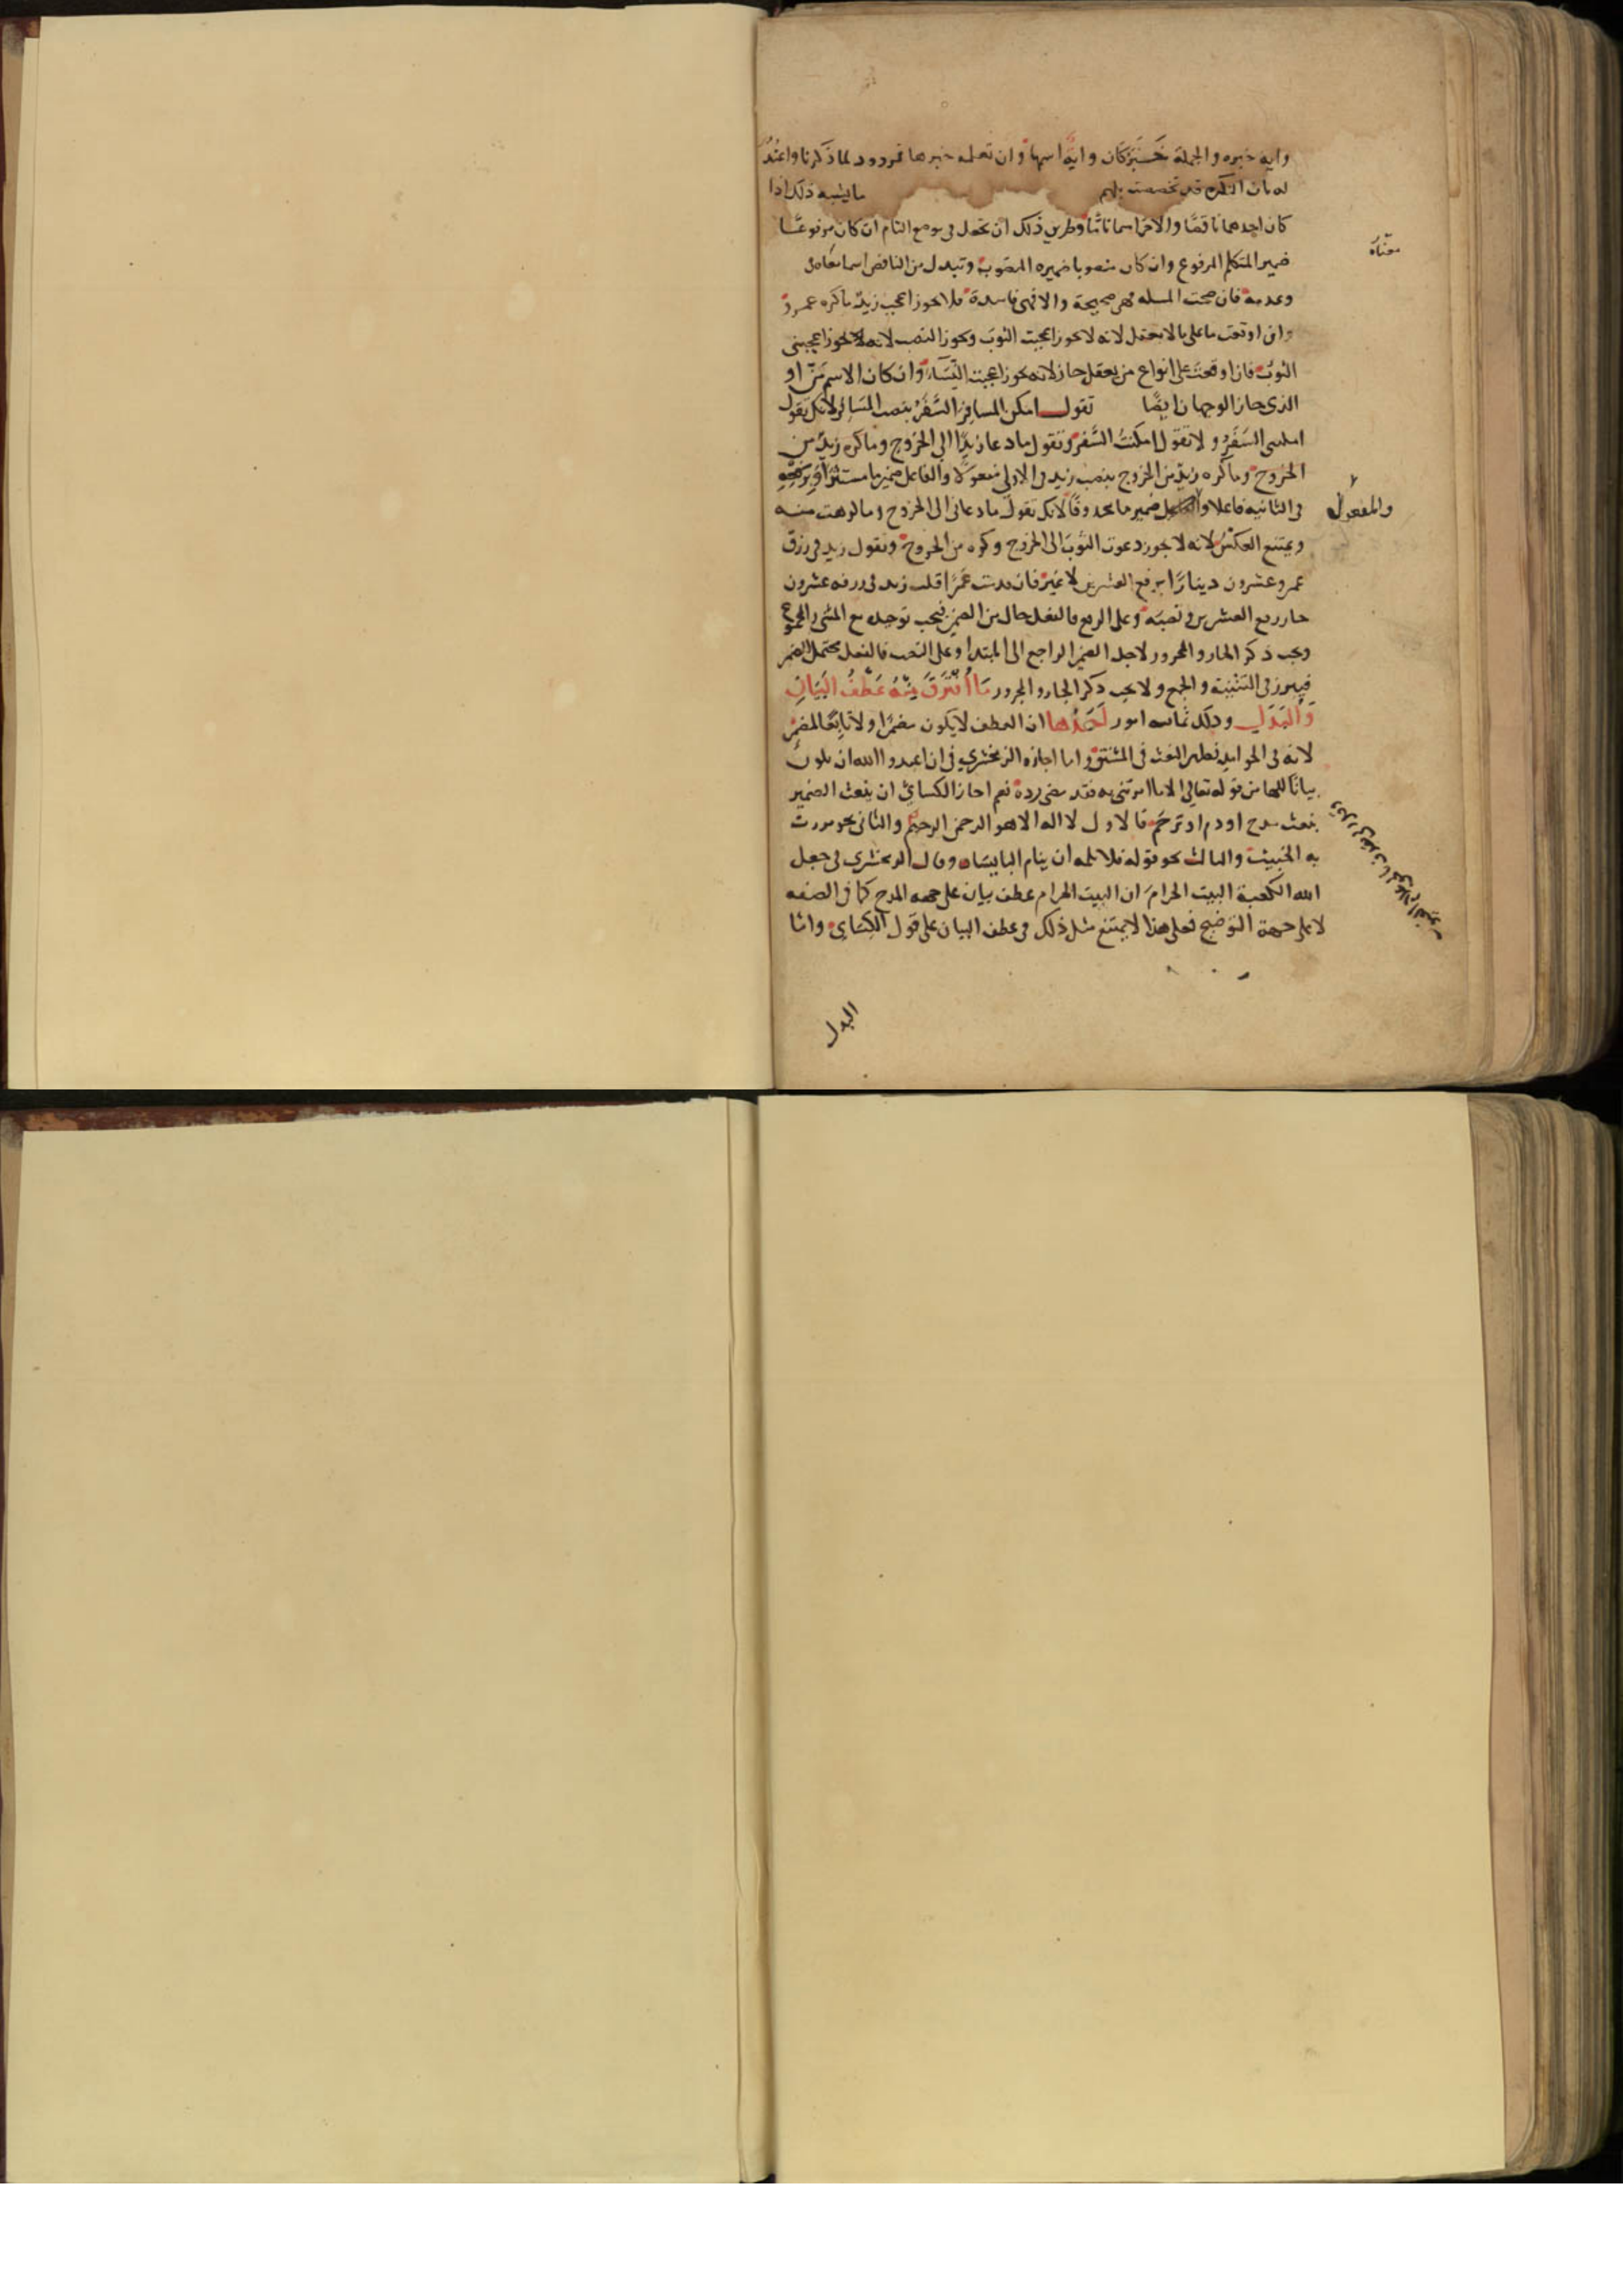 واية خبره والجملة خبر كان واية اسمها وان تعمله خبرها فمردود لما ذكرنا واعتذر
له بان النكرة قد تخصصت بلهم ما يشبه ذلك اذا
كان احدهما ناقصًا والاخر اسما تامًّا وطريق ذلك ان تجعل في موضع التام ان كان مرفوعًا
ضمير المتكلم المرفوع وان كان منصوبا ضميره المنصوب وتبدل من الناقص اسما بمعناه في
معناه
وعدمه فان صحت المسله فهي صحيحة والا فهي فاسدة فلا يجوز اعجب زيد ما كره عمرو
وان اوقعت ما على ما لا يعقل لانه لا يجوز اعجبت الثوب ويجوز النصب لانه يجوز اعجبني
الثوب فان اوقعت على انواع من يعقل جاز لانه يجوز اعجبت النساء وان كان الاسم من او
الذي جاز الوجهان ايضًا تقول امكن المسافر السفر بنصب المسافر لانك تقول
امكنني السفر ولا تقول امكنت السفر وتقول ما دعا زيدًا الى الخروج وما كره زيد من
الخروج وما كره زيد من الخروج بنصب زيد في الاولى مفعولا والفاعل ضمير ما مستترًا وبرفعه
في الثانيه فاعلا والمفعول ضمير ما محذوفًا لانك تقول ما دعاني الى الخروج وما كرهت منه
والمفعول
ويمتنع العكس لانه لا يجوز دعوت الثوب الى الخروج وكره من الخروج وتقول زيد في رزق
عمرو عشرون دينارًا برفع العشرين لا غير فان قدمت عمرًا قلت زيد في رزقه عشرون
جاز رفع العشرين ونصبه وعلى الرفع فالفعل خال من الضمير فيجب توحيده مع المثنى والمجموع
ويجب ذكر الجار والمجرور لاجل الضمير الراجع الى المبتدا وعلى النصب فالفعل محتمل للضمير
فيبرز في التثنية والجمع ولا يجب ذكر الجار والمجرور مَا افْتَرَقَ فِيْهِ عَطْفُ البَيَانِ
وَالبَدَلِ وذلك ثمانيه امور اَحَدُها ان العطف لا يكون مضمرًا ولا تابعًا لمضمر
لانه في الجوامد نظير النعت في المشتق واما اجازه الزمخشري في ان اعبدوا الله ان يكون
بيانًا للها من قوله تعالى الا ما امرتني به فقد مضى رده نعم اجاز الكسائي ان ينعت الضمير
بنعت مدح او ذم او ترحم فالاول لا اله الا هو الرحمن الرحيم والثاني نحو مررت
به الخبيث والثالث نحو قوله فلا تلمه ان ينام البايسا وقال الزمخشري في جعل
الله الكعبة البيت الحرام ان البيت الحرام عطف بيان على جهه المدح كما في الصفه
لا على جهة التوضيح فعلى هذا لا يمتنع مثل ذلك في عطف البيان على قول الكسائي واما
البدل